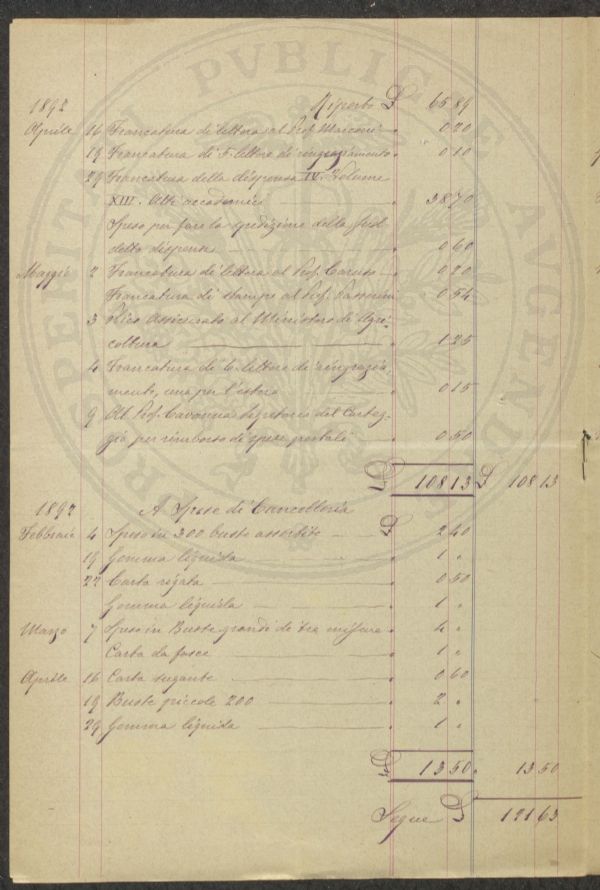 PROSPERITATI PUBLICAE AUGENDAE
1892 Riporto £ 65 89
Aprile 16 Francatura di lettera al Prof. Marconi " 0 20
19 Francatura di 5 lettere di ringraziamento " 0 10
29 Francatura della dispensa IV. Volume
XIII. Atti accademici " 38 70
Spese per fare la spedizione della sud
detta dispensa " 0 60
Maggio 2 Francatura di lettera al Prof. Caruso " 0 20
Francatura di stampe al Prof. Passerini " 0 54
3 Plico Assicurato al Ministero di Agri-
coltura " 1 25
4 Francatura di 6 lettere di ringrazia
mento, una per l'estero " 0 15
9 Al Prof. Cavanna Segretario del Carteg-
gio per rimborso di spese postali " 0 50
£ 108 13 £ 108 13
1892 A Spese di Cancelleria
Febbraio 4 Spese in 300 buste assortite £ 2 40
19 Gomma liquida " 1 "
22 Carta rigata " 0 50
Gomma liquida " 1 "
Marzo 7 Spese in Buste grandi di tre misure " 4 "
Carta da fasce " 1 "
Aprile 16 Carta sugante " 0 60
19 Buste piccole 200 " 2 "
29 Gomma liquida " 1 "
£ 13 50 " 13 50
Segue £ 121 63